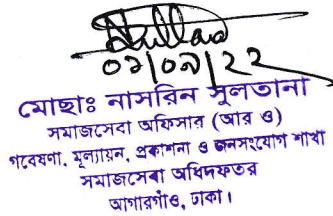 ০১/০৯/২২
মোছাঃ নাসরিন সুলতানা
সমাজসেবা অফিসার (আর ও)
গবেষণা, মূল্যায়ন, প্রকাশনা ও জনসংযোগ শাখা
সমাজসেবা অধিদফতর
আগারগাঁও, ঢাকা।